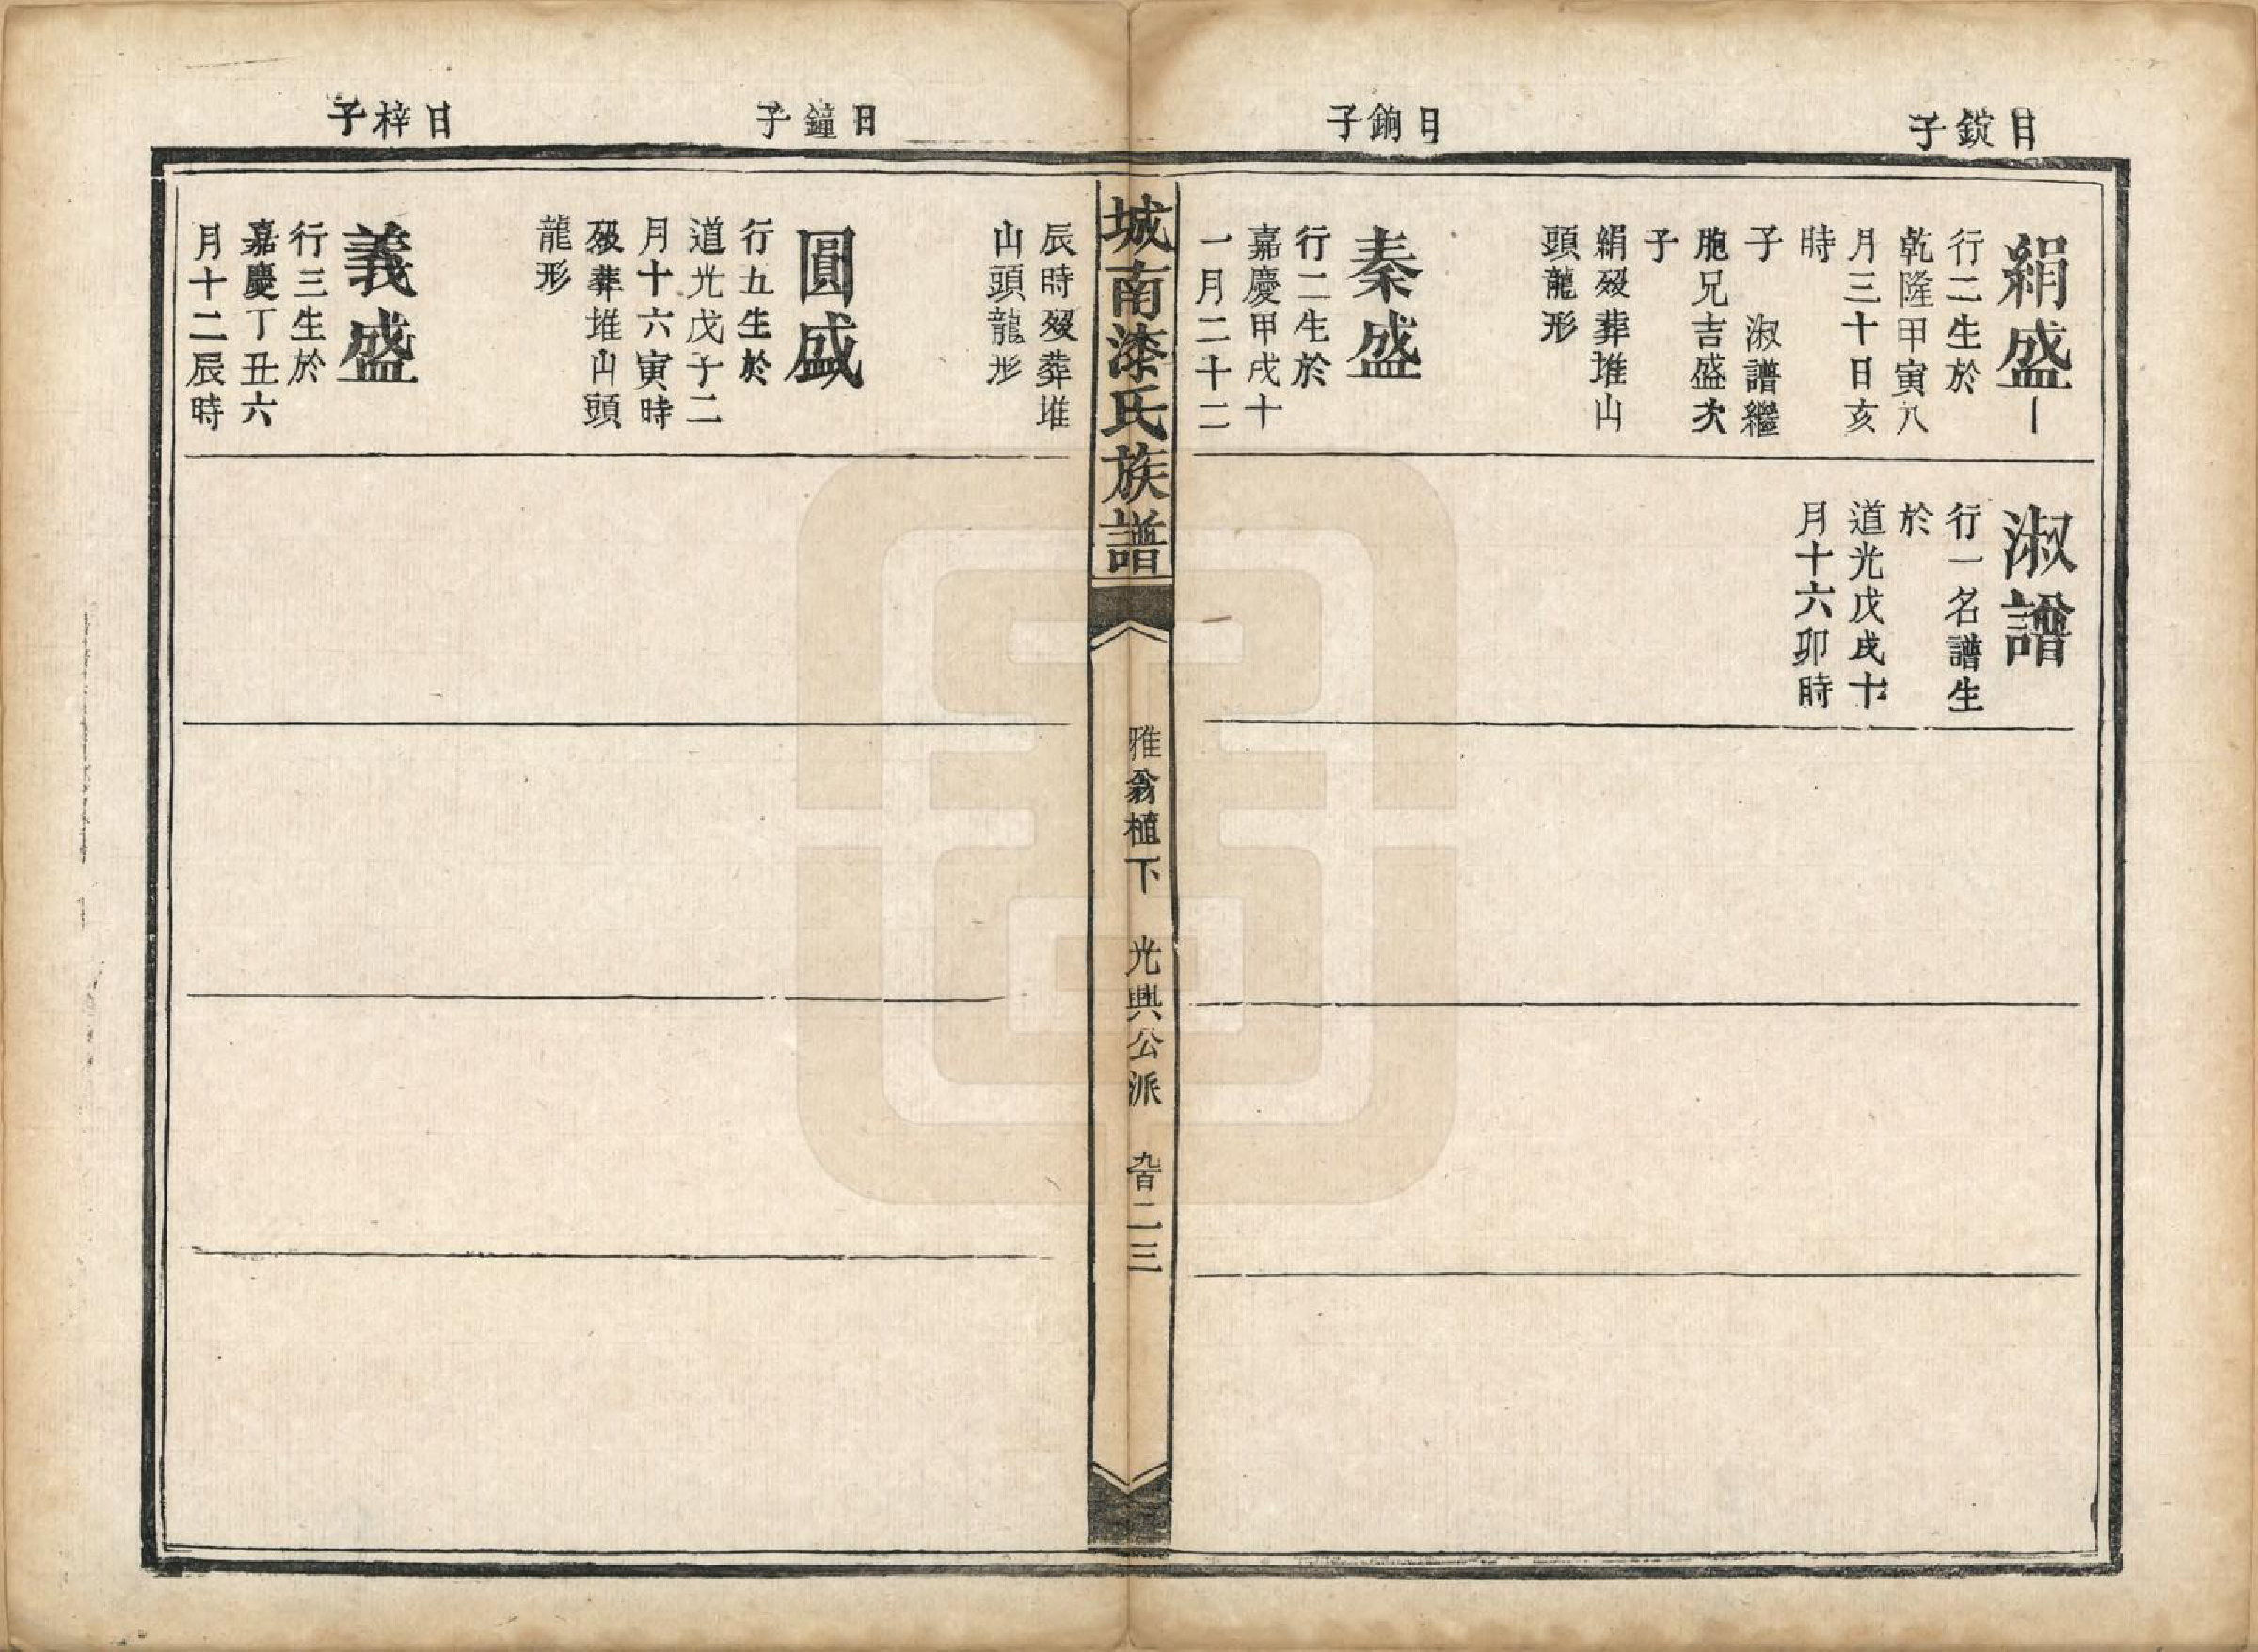 日錠子
絹盛
行二生於
乾隆甲寅八
月三十日亥
時
子　淑譜繼
胞兄吉盛次
子
絹歿葬堆山
頭龍形
淑譜
行一名譜生
於
道光戊戌十
月十六卯時
日銄子
秦盛
行二生於
嘉慶甲戌十
一月二十二
城南漆氏族譜
雅翁植下　光興公派　九百二三
辰時歿葬堆
山頭龍形
日鐘子
圓盛
行五生於
道光戊子二
月十六寅時
歿葬堆山頭
龍形
日梓子
義盛
行三生於
嘉慶丁丑六
月十二辰時